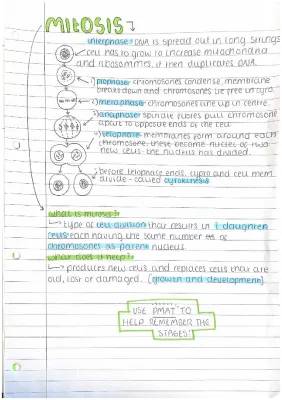 MITOSIS
interphase: DNA is spread out in long strings
cell has to grow to increase mitochondria
and ribosomes. it then duplicates DNA.
1) prophase - chromosomes condense, membrane
breaks down and chromosomes lie free in cyto.
2) metaphase - chromosomes line up in centre.
3) anaphase - spindle fibres pull chromosomes
apart to opposite ends of the cell
4) telophase - membranes form around each
chromosome. these become nuclei of two
new cells. the nucleus has divided.
before telophase ends, cyto and cell mem.
divide - called cytokinesis
what is mitosis?
type of cell division that results in 2 daughter
cells each having the same number of
chromosomes as parent nucleus.
what does it help?
produces new cells and replaces cells that are
old, lost or damaged. (growth and development)
USE PMAT TO
HELP REMEMBER THE
STAGES!